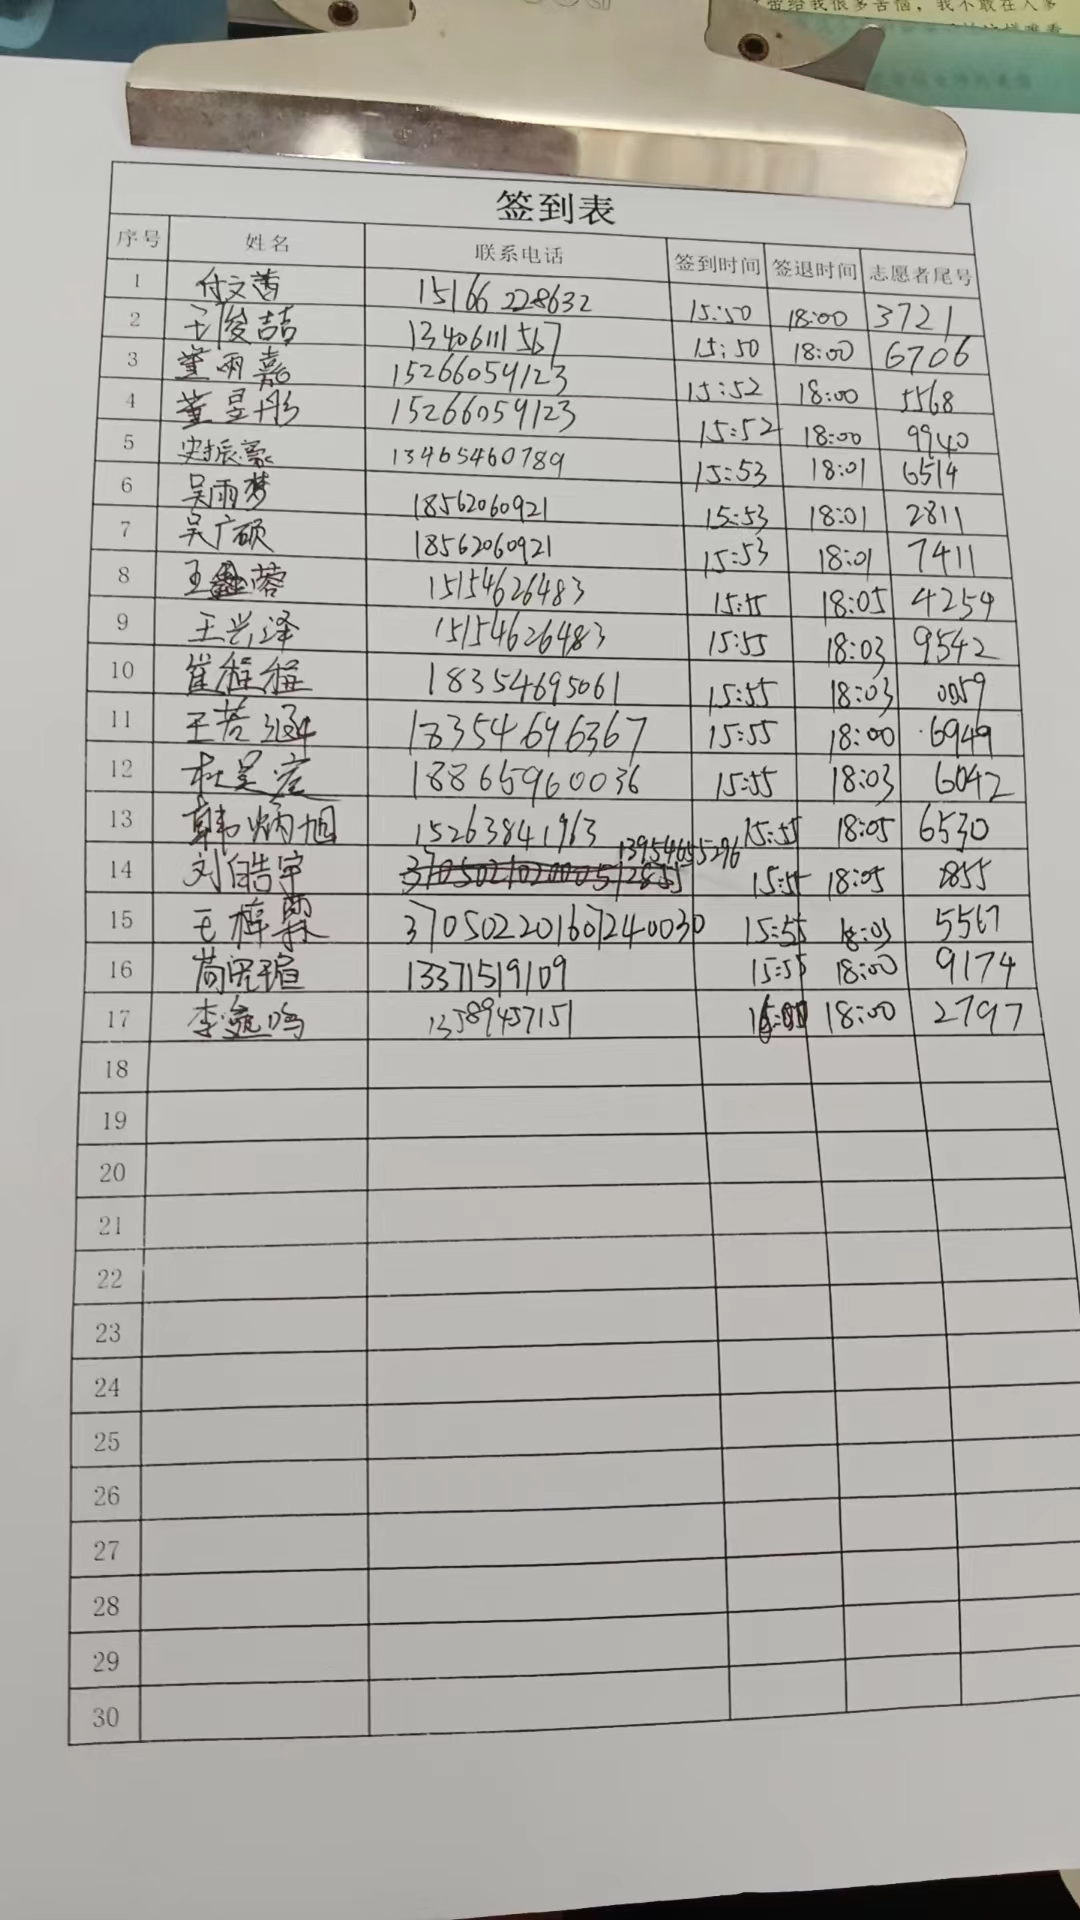 带给我很多苦恼，我不敢在人多
签到表
序号 姓名 联系电话 签到时间 签退时间 志愿者尾号
1 付文茜 15166228632 15:50 18:00 3721
2 王俊喆 13406111567 15:50 18:00 6706
3 董雨嘉 15266059123 15:52 18:00 5568
4 董昱彤 15266059123 15:52 18:00 9940
5 史振豪 13465460789 15:53 18:01 6514
6 吴雨梦 18562060921 15:53 18:01 2811
7 吴广硕 18562060921 15:53 18:01 7411
8 王蓉 15154626483 15:55 18:05 4259
9 王兴泽 15154626483 15:55 18:03 9542
10 崔程程 18354695061 15:55 18:03 0059
11 王若涵 18354696367 15:55 18:00 6949
12 杜昊 18865960036 15:55 18:03 6042
13 韩炳旭 15263841963 15:55 18:05 6530
13954655296
14 刘皓宇 15:55 18:05 2855
15 王梓霖 370502201607240030 15:55 18:03 5567
16 瑄 13371519109 15:55 18:00 9174
17 李鸣 13589457151 18:00 2797
18
19
20
21
22
23
24
25
26
27
28
29
30